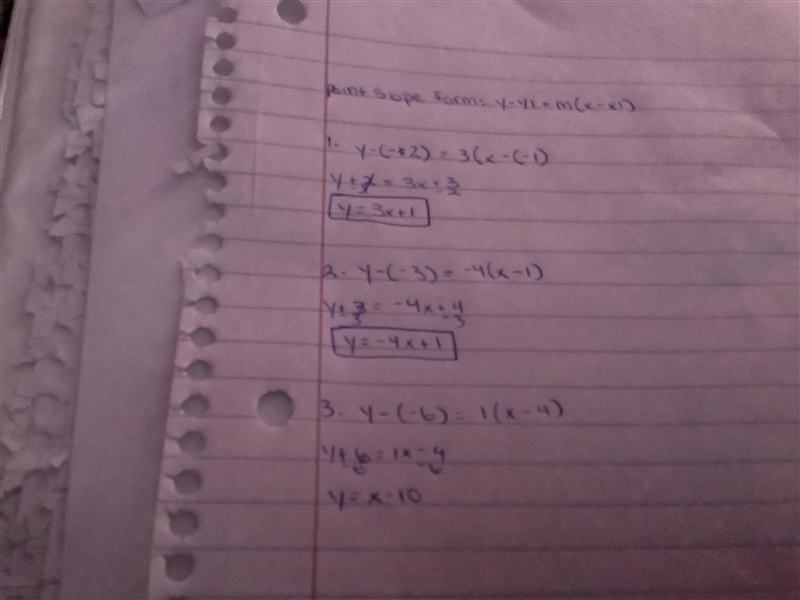 point slope form: y-y1=m(x-x1)
1. y-(-+2)=3(x-(-1)
y+2=3x+3
-2 -2
y=3x+1
2. y-(-3)=-4(x-1)
y+3=-4x+4
-3 -3
y=-4x+1
3. y-(-6)=1(x-4)
y+6=1x-4
-6 -6
y=x-10